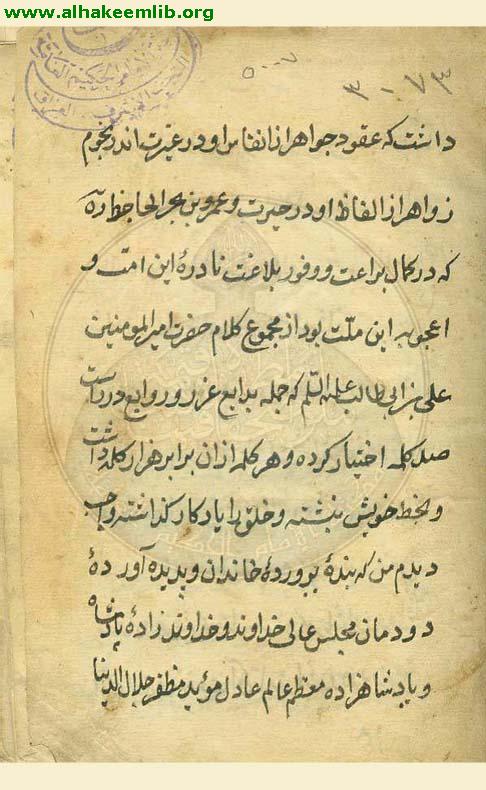 www.alhakeemlib.org
۵۰۰۷
۳۰۷۳
داشت که عقود جواهر از انفاس او در غیرت اند و نجوم
زواهر از الفاظ او در حیرت و عمرو بن بحر الجاحظ ره
که در کمال براعت و وفور بلاغت نادرهٔ این امت و
اعجوبه این ملّت بود از مجموع کلام حضرت امیرالمومنین
علی بن ابی طالب علیه السّلم که جمله بدایع غرر و روایع درر است
صد کلمه اختیار کرده و هر کلمه از ان برابر هزار کلمه داشته
و بخط خویش نبشته و خلق را یادکار کذاشته واجب
دیدم من که بندهٔ پروردهٔ خاندان و پدیده آوردهٔ
دودمان مجلس عالی خداوند و خداوند زادهٔ پادشاه
و پادشاهزاده معظم عالم عادل مؤید مظفر جلال الدنیا